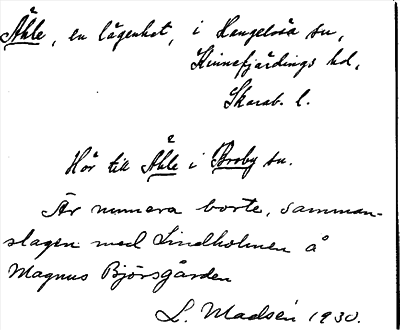 Åhle, en lägenhet, i Hangelösa sn,
Kinnefjärdings hd,
Skarab. l.
Hör till Åhle i Broby sn.
Är numera borta, samman-
slagen med Lindholmen å
Magnus Björsgården
L. Madsén 1930.